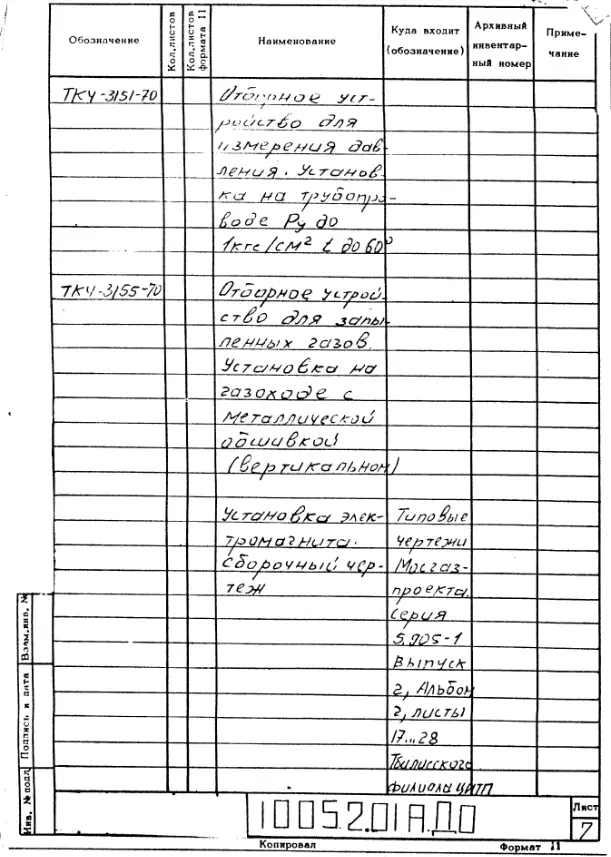 Обозначение
Кол.листов
Кол.листов формата 11
Наименование
Куда входит
(обозначение)
Архивный
инвентар-
ный номер
Приме-
чание
ТК4-3151-70
Отборное уст-
ройство для
измерения дав-
ления. Установ-
ка на трубопро-
воде Ру до
1кгс/см² t до 60°
ТК4-3155-70
Отборное устрой-
ство для запы-
ленных газов.
Установка на
газоходе с
металлической
обшивкой
(вертикальном)
Установка элек-
тромагнита.
Сборочный чер-
теж
Типовые
чертежи
Мосгаз-
проекта.
Серия
5.905-1
Выпуск
2, Альбом
2, листы
17...28
Тбилисского
филиала ЦИТП
Взам.инв. №
Подпись и дата
Инв. № подл
10052.01А.ДО
Лист
7
Копировал
Формат 11